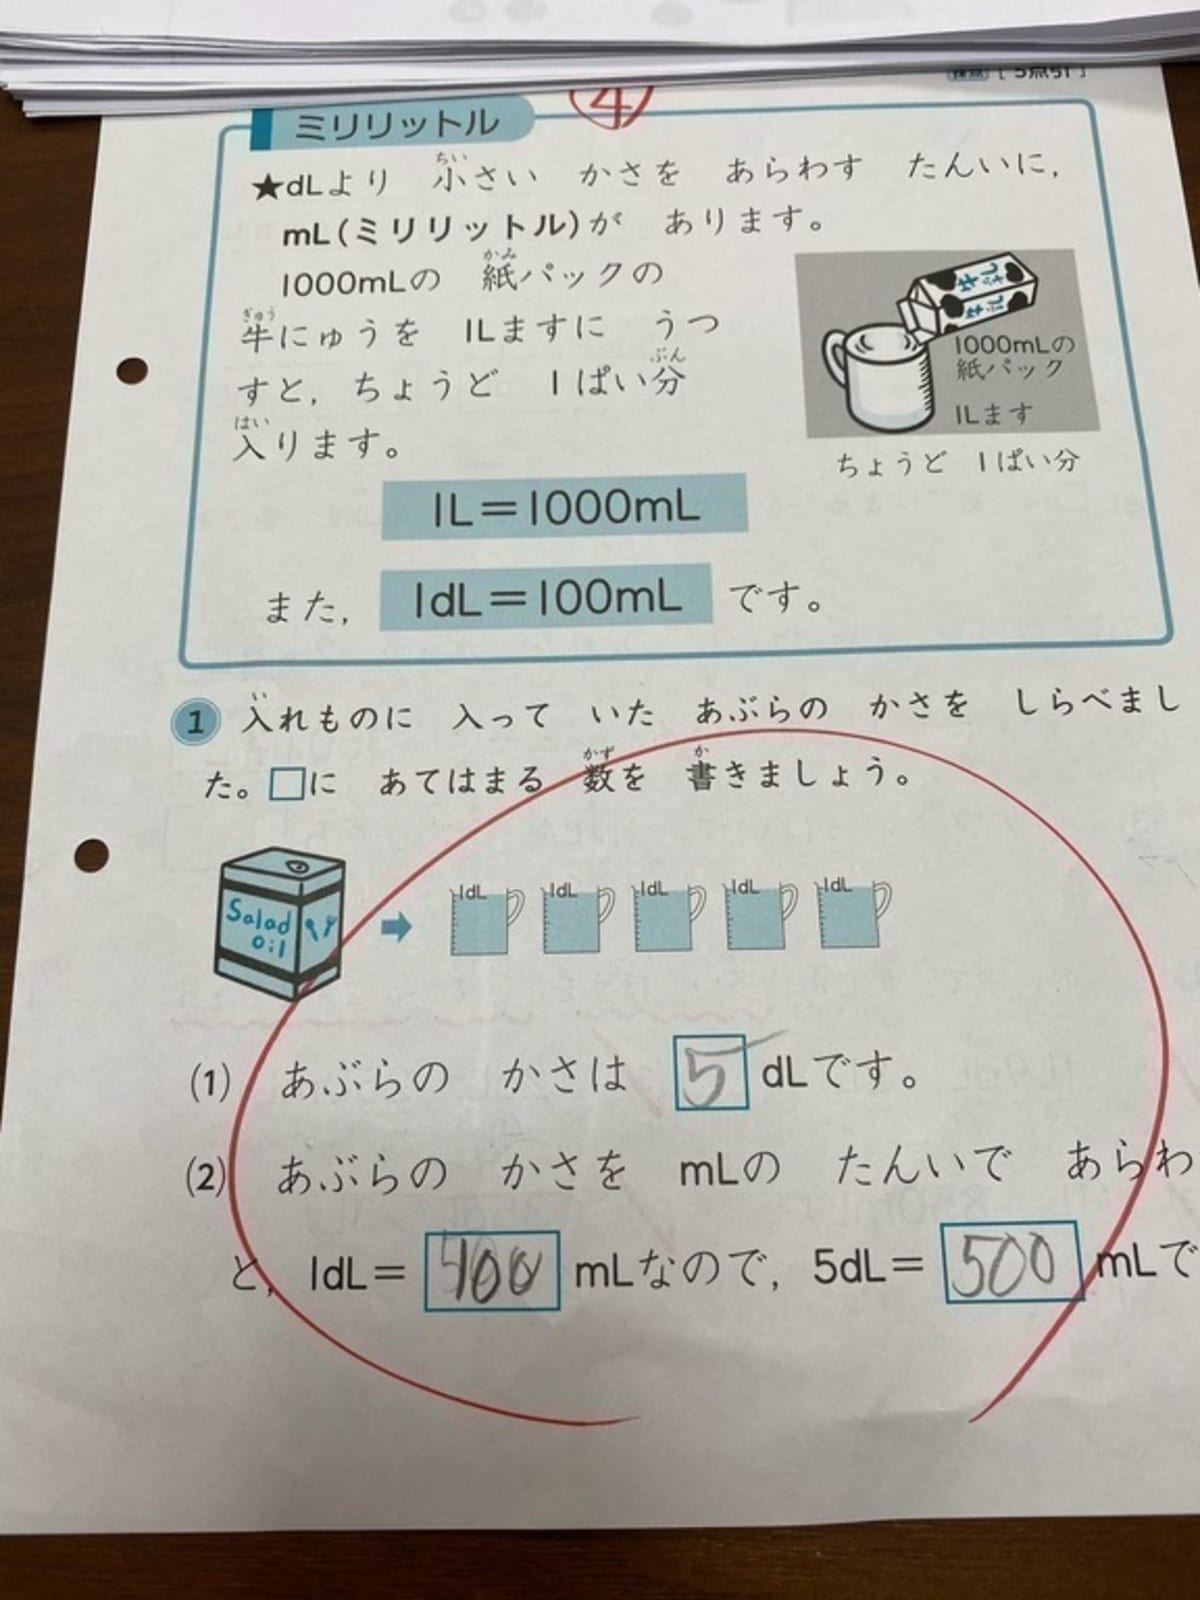 採点 [5点引]
④
ミリリットル
★dLより 小さい かさを あらわす たんいに,
mL(ミリリットル)が あります。
1000mLの 紙パックの
牛にゅうを 1Lますに うつ
すと, ちょうど 1ぱい分
入ります。
1000mLの
紙パック
1Lます
ちょうど 1ぱい分
1L=1000mL
また, 1dL=100mL です。
1 入れものに 入って いた あぶらの かさを しらべまし
た。□に あてはまる 数を 書きましょう。
Salad
Oil
1dL 1dL 1dL 1dL 1dL
(1) あぶらの かさは 5 dLです。
(2) あぶらの かさを mLの たんいで あらわ
と, 1dL= 100 mLなので, 5dL= 500 mLで